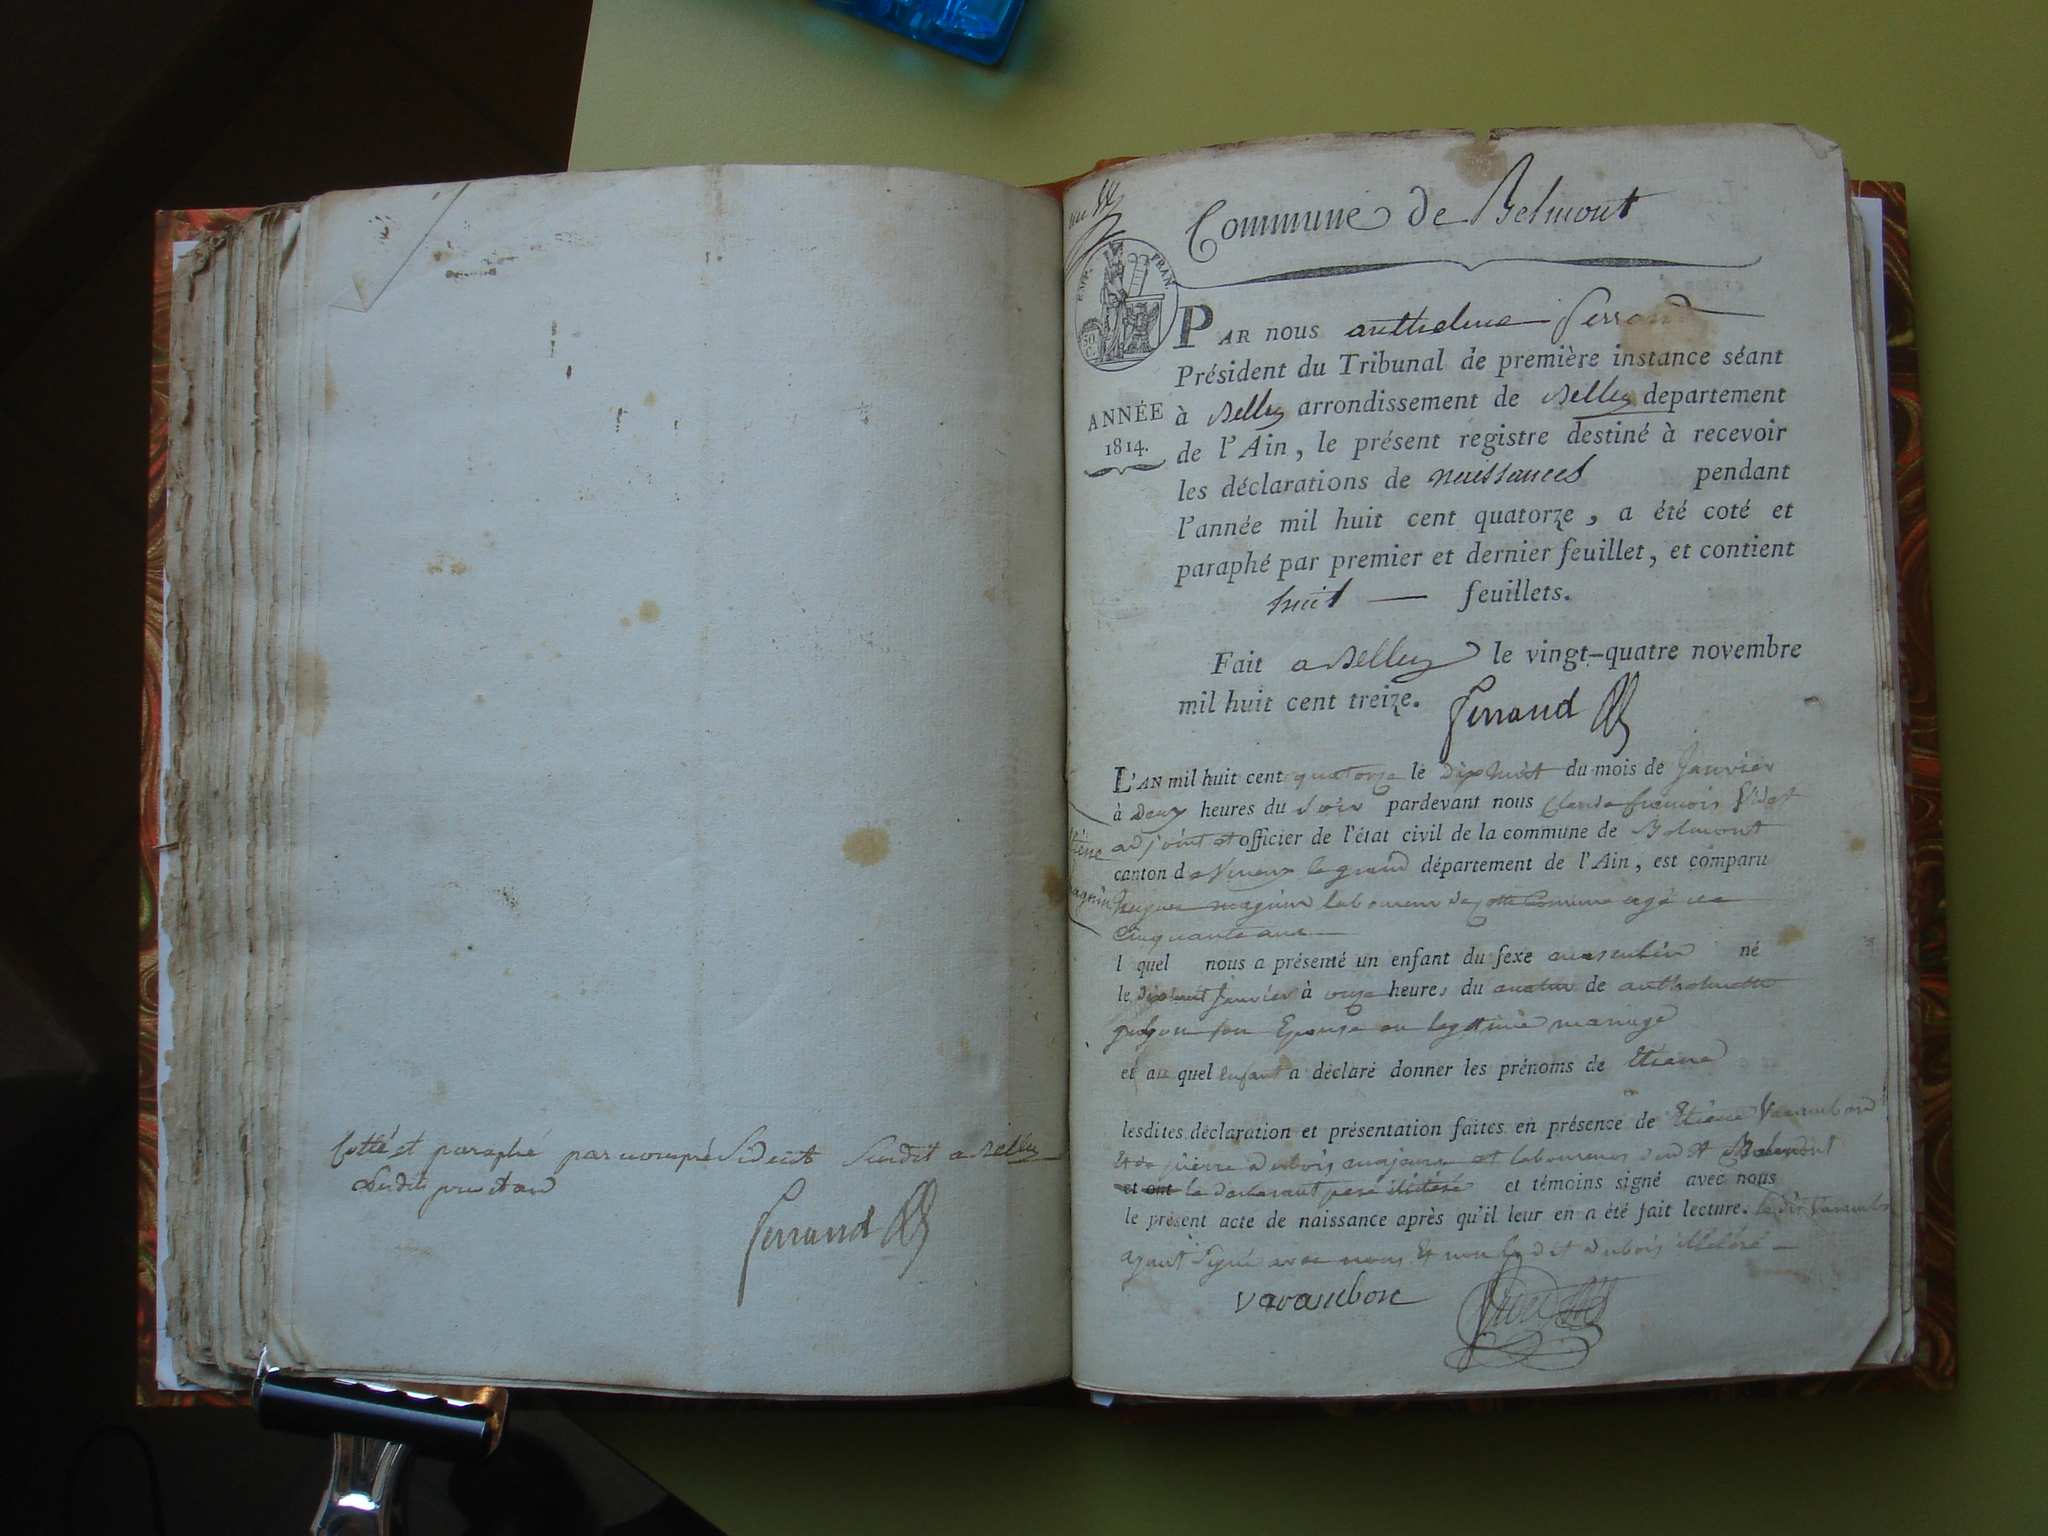 Cotté et paraphé par nous président Susdit a Belley
Lesdits jour et an
Ferrand
Commune de Belmont
EMP. FRAN.
50 C.
ANNÉE
1814.
PAR nous anthelme Ferrand
Président du Tribunal de première instance séant
à Belley arrondissement de Belley departement
de l'Ain, le présent registre destiné à recevoir
les déclarations de naissances pendant
l'année mil huit cent quatorze, a été coté et
paraphé par premier et dernier feuillet, et contient
huit — feuillets.
Fait a Belley le vingt-quatre novembre
mil huit cent treize. Ferrand
L'AN mil huit cent quatorze le dix huit du mois de Janvier
à Deux heures du Soir pardevant nous Claude francois Vidot
adjoint et officier de l'état civil de la commune de Belmont
canton de Virieux le grand département de l'Ain, est comparu
hugues magnin laboureur de cette Commune agé de
Cinquante ans
l quel nous a présenté un enfant du sexe masculin né
le dix huit Janvier à onze heures du matin de anthelmette
son Epouse en legitime mariage
et au quel enfant a déclaré donner les prénoms de Etiene
lesdites déclaration et présentation faites en présence de Etiene Varambon
Et de pierre dubois majeurs et laboureurs dud t Belmont
et ont le declarant pere illiteré et témoins signé avec nous
le présent acte de naissance après qu'il leur en a été fait lecture. le dit Varambon
ayant Signé avec nous Et non le dit dubois illiteré
varambon